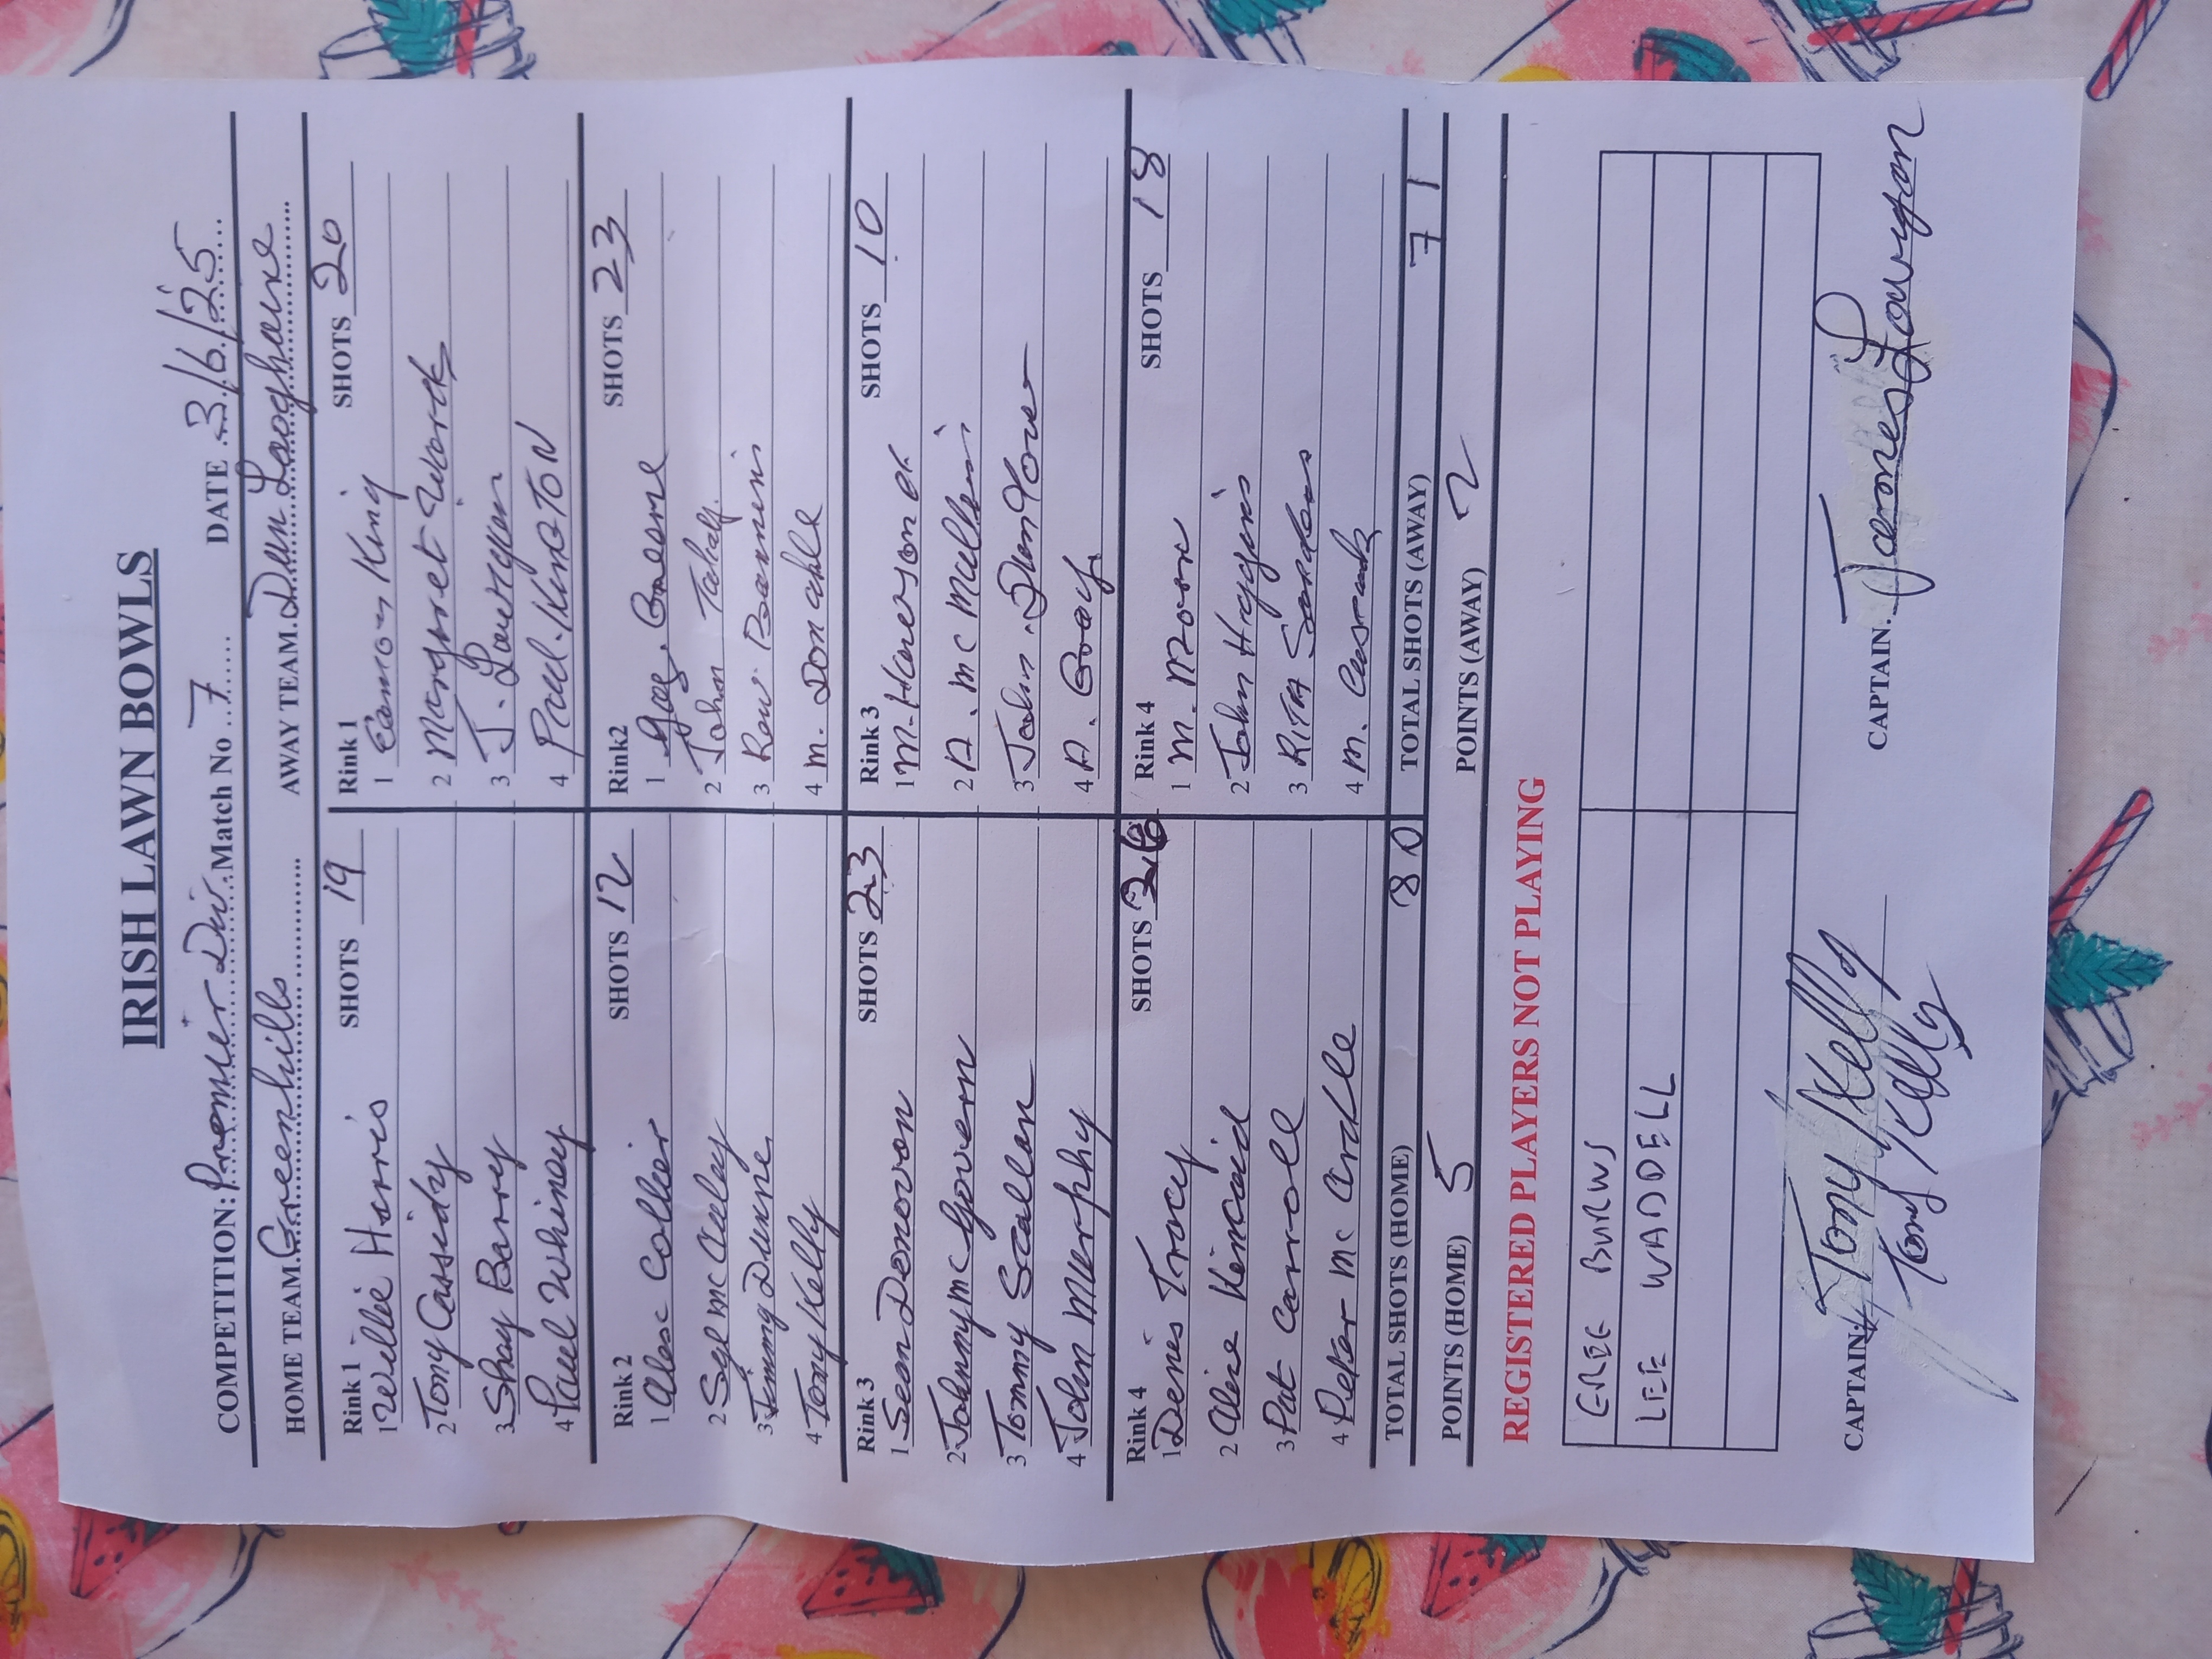 IRISH LAWN BOWLS
COMPETITION: Premier Div. Match No 7 DATE 3/6/25
HOME TEAM Greenhills AWAY TEAM Dun Laoghaire
Rink 1 SHOTS 19 Rink 1 SHOTS 20
1 Willie Harris 1 Eamon King
2 Tony Cassidy 2 Margret Work
3 Shay Barry 3 J. Lourigan
4 Paul Whiney 4 Paul. KINGTON
Rink 2 SHOTS 12 Rink2 SHOTS 23
1 Alec Collier 1
2 Syl mc Auley 2 John
3 Jimmy Dunne 3
4 Tony Kelly 4 M. Donable
Rink 3 SHOTS 23 Rink 3 SHOTS 10
1 Sean Donovan 1 M.
2 Johnny mc Govern 2 A. Mc Mullen
3 Tommy Scallan 3 John.
4 John Murphy 4 A.
Rink 4 SHOTS 26 Rink 4 SHOTS 18
1 Denis Tracy 1 M. Moore
2 Alice Kincaid 2 John Higgins
3 Pat Carroll 3 RITA
4 Peter Mc Ardle 4 M.
TOTAL SHOTS (HOME) 80 TOTAL SHOTS (AWAY) 71
POINTS (HOME) 5 POINTS (AWAY) 2
REGISTERED PLAYERS NOT PLAYING
BURNS
LEE WADDELL
CAPTAIN: Tony Kelly CAPTAIN. James Lourigan
Tony Kelly